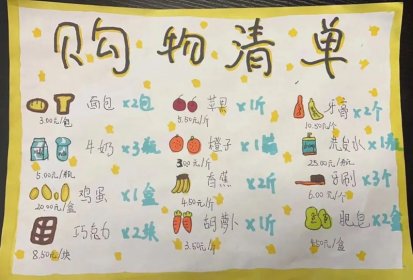 购物清单
面包 x2包
3.00元/包
牛奶 x3瓶
5.00元/瓶
鸡蛋 x1盒
20.00元/盒
巧克力 x2块
8.50元/块
苹果 x1斤
5.50元/斤
橙子 x1
3.00元/斤
香蕉 x2斤
4.50元/斤
胡萝卜 x1斤
3.50元/斤
牙膏 x2个
10.50元/个
洗发水 x1瓶
25.00元/瓶
牙刷 x3个
6.00元/个
肥皂 x2盒
4.50元/盒